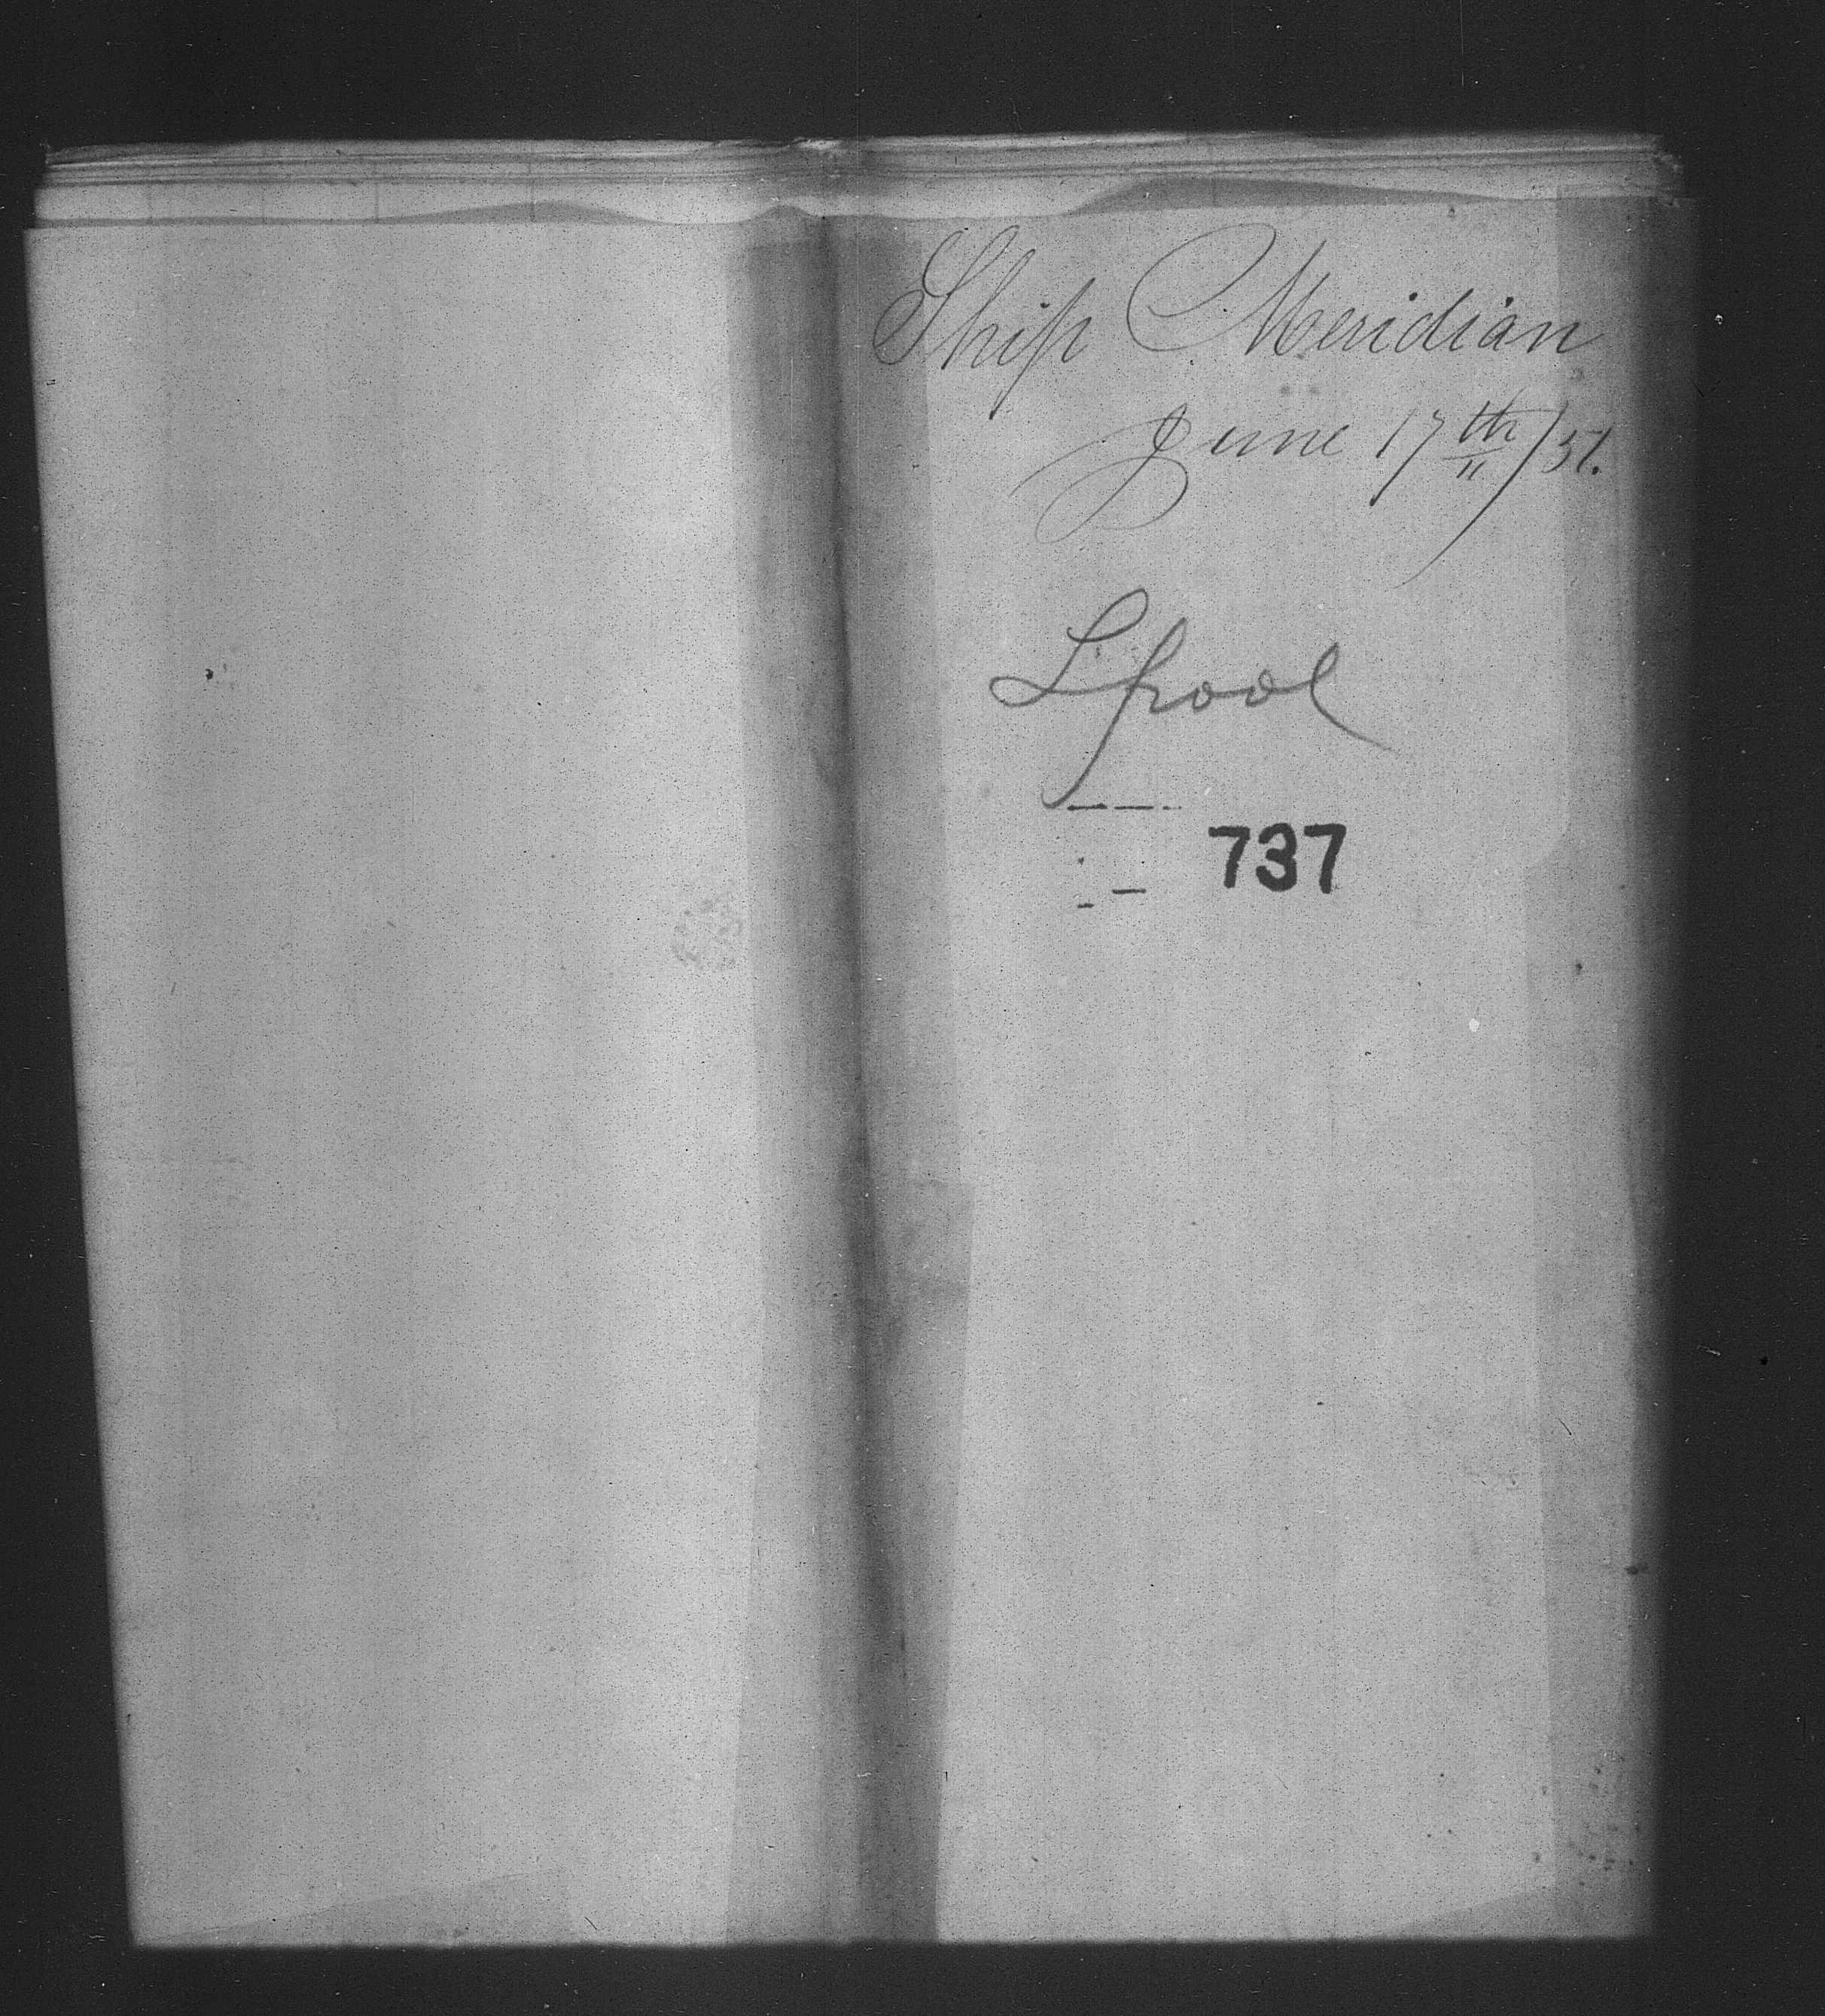 Ship Meridian
June 17th/51.
Lpool
737